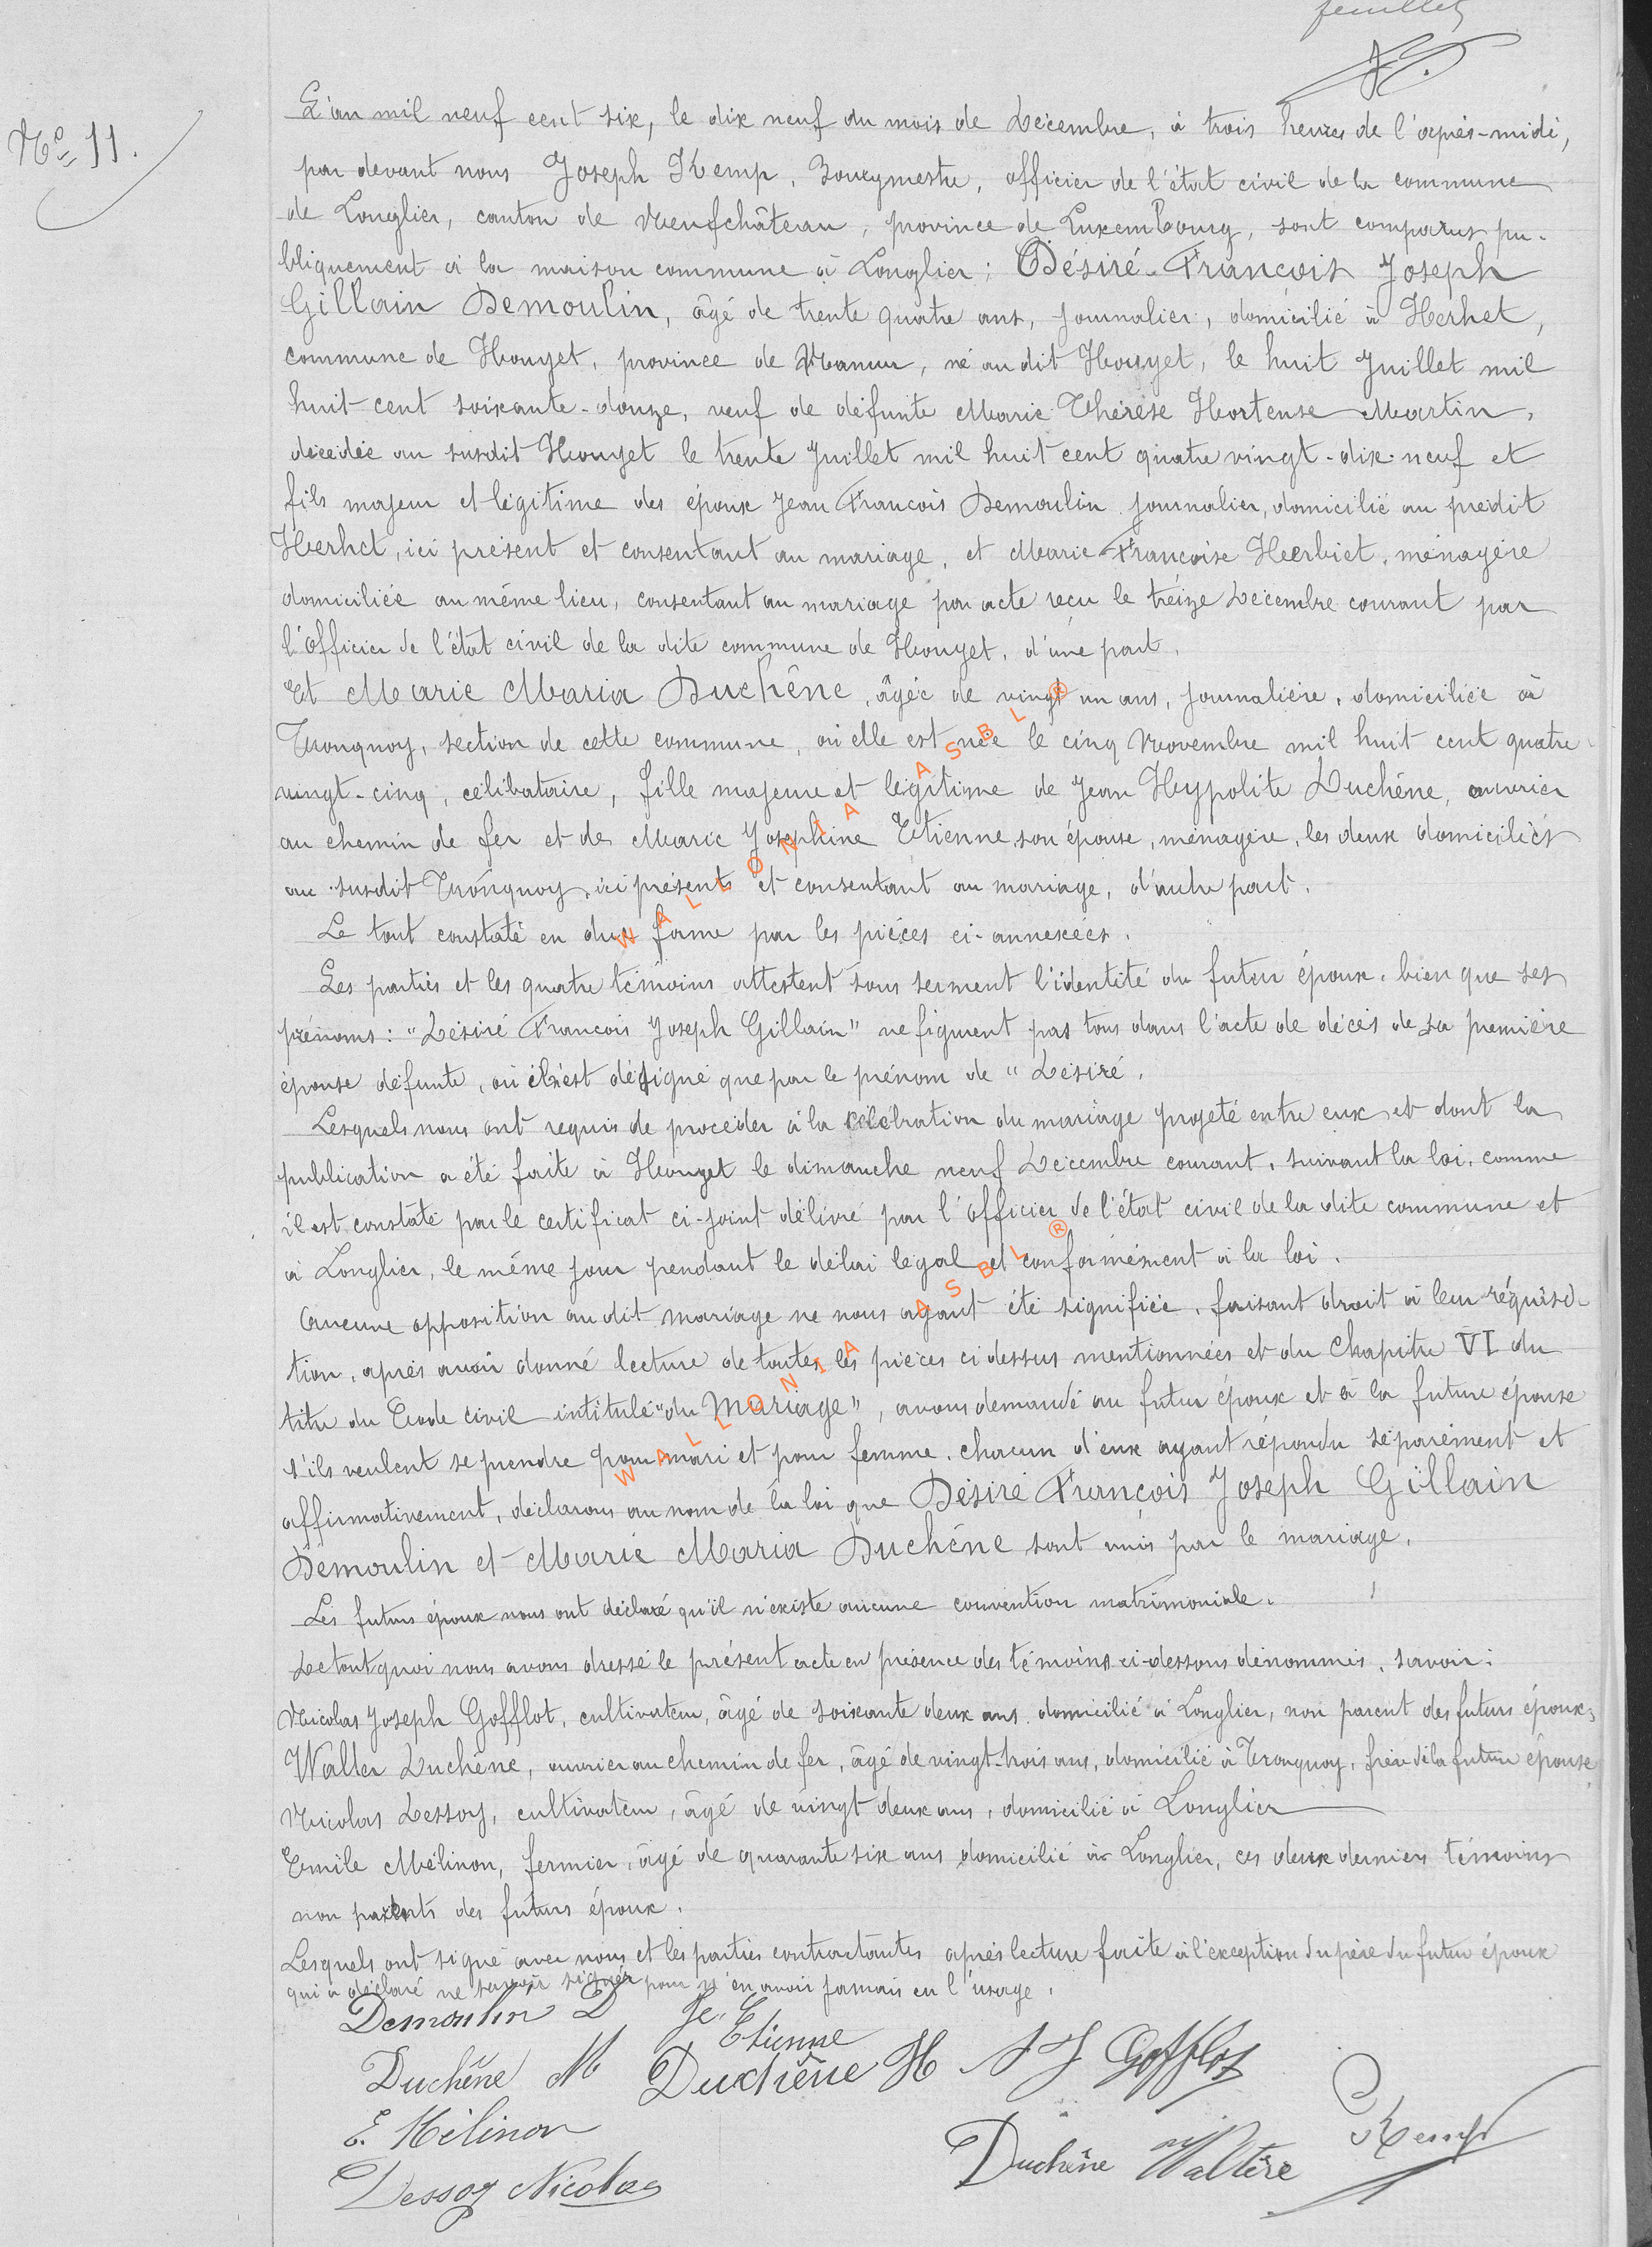 feuillet
Nº 11.
L'an mil neuf cent six, le dix neuf du mois de Décembre, à trois heures de l'après-midi,
par devant nous Joseph Kemp, Bourgmestre, officier de l'état civil de la commune
de Longlier, canton de Neufchâteau, province de Luxembourg, sont comparus pu-
bliquement à la maison commune à Longlier; Désiré-François Joseph
Gillain Demoulin, âgé de trente quatre ans, journalier, domicilié à Herhet,
commune de Houyet, province de Namur, né au dit Houyet, le huit Juillet mil
huit cent soixante-douze, veuf de défunte Marie Thérèse Hortense Martin,
décédée au susdit Houyet le trente Juillet mil huit cent quatre vingt-dix-neuf et
fils majeur et légitime des époux Jean François Demoulin journalier, domicilié au prédit
Herhet, ici présent et consentant au mariage, et Marie Françoise Herbiet, ménagère
domiciliée au même lieu, consentant au mariage par acte reçu le treize Décembre courant par
l'officier de l'état civil de la dite commune de Houyet, d'une part.
Et Marie Maria Duchêne, âgée de vingt un ans, journalière, domiciliée à
Tronquoy, section de cette commune, où elle est née le cinq Novembre mil huit cent quatre
vingt-cinq, célibataire, fille majeure et légitime de Jean Hypolite Duchêne, ouvrier
au chemin de fer et de Marie Josephine Etienne son épouse, ménagère, les deux domiciliés
au susdit Tronquoy, ici présents et consentant au mariage, d'autre part.
Le tout constaté en due forme par les pièces ci-annexées.
Les parties et les quatre témoins attestent sous serment l'identité du futur époux, bien que ses
prénoms: "Désiré François Joseph Gillain" ne figurent pas tous dans l'acte de décès de sa première
épouse défunte, où il n'est désigné que par le prénom de "Désiré.
Lesquels nous ont requis de procéder à la célébration du mariage projeté entre eux et dont la
publication a été faite à Houyet le dimanche neuf Décembre courant, suivant la loi, comme
il est constaté par le certificat ci-joint délivré par l'officier de l'état civil de la dite commune et
à Longlier, le même jour pendant le délai légal et conformément à la loi.
Aucune opposition au dit mariage ne nous ayant été signifiée, faisant droit à leur réquisi-
tion, après avoir donné lecture de toutes les pièces ci dessus mentionnées et du Chapitre VI du
titre du Code civil intitulé "du Mariage", avons demandé au futur époux et à la future épouse
s'ils veulent se prendre pour mari et pour femme, chacun d'eux ayant répondu séparément et
affirmativement, déclarons au nom de la loi que Désiré François Joseph Gillain
Demoulin et Marie Maria Duchêne sont unis par le mariage.
Les futurs époux nous ont déclaré qu'il n'existe aucune convention matrimoniale.
De tout quoi nous avons dressé le présent acte en présence des témoins ci-dessous dénommés, savoir:
Nicolas Joseph Gofflot, cultivateur, âgé de soixante deux ans domicilié à Longlier, non parent des futurs époux,
Walter Duchêne, ouvrier au chemin de fer, âgé de vingt-trois ans, domicilié à Tronquoy, frère de la future épouse
Nicolas Dessoy, cultivateur, âgé de vingt deux ans, domicilié à Longlier
Emile Mélinon, fermier, âgé de quarante six ans domicilié à Longlier, ces deux derniers témoins
non parents des futurs époux.
Lesquels ont signé avec nous et les parties contractantes après lecture faite à l'exception du père du futur époux
qui a déclaré ne savoir signer pour n'en avoir jamais eu l'usage.
Demoulin D Je. Etienne
Duchêne M Duchêne H N J Gofflot
E. Mélinon
Duchêne Waltère Kemp
Dessoy Nicolas
WALLONIA ASBL ®
WALLONIA ASBL ®